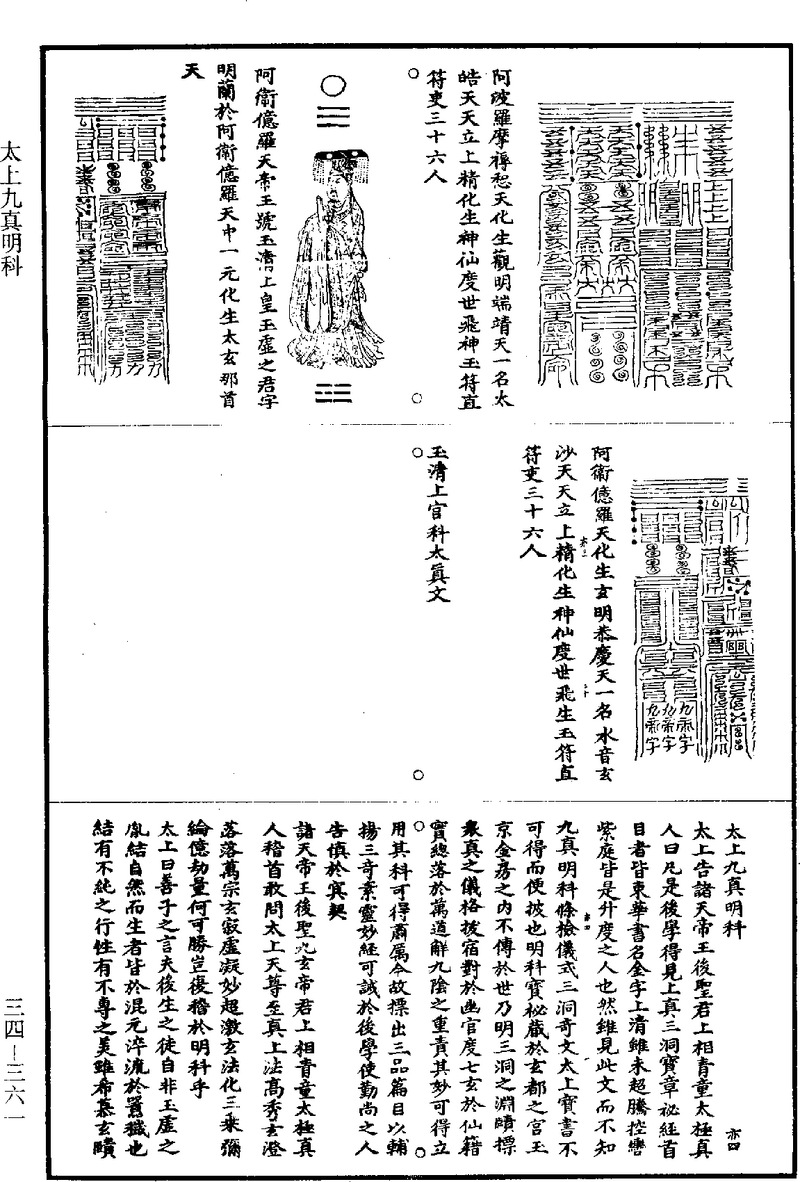 太上九真明科
三四—三六一
阿波羅摩褥恕天化生觀明端靖天一名太
皓天天立上精化生神仙度世飛神玉符直
符吏三十六人
阿衛億羅天帝王號玉濟上皇玉虛之君字
明蘭於阿衛億羅天中一元化生太玄那首
天
阿衛億羅天化生玄明恭慶天一名水音玄
沙天天立上精化生神仙度世飛生玉符直
符吏三十六人
玉清上宮科太真文
太上九真明科
亦四
太上告諸天帝王後聖君上相青童太極真
人曰凡是後學得見上真三洞寶章祕經首
目者皆東華書名金字上清雖未超騰控轡
紫庭皆是升度之人也然雖見此文而不知
九真明科條檢儀式三洞奇文太上寶書不
可得而使披也明科寶祕藏於玄都之宮玉
京金房之內不傳於世乃明三洞之淵賾標
衆真之儀格拔宿對於幽官度七玄於仙籍
寶總落於萬道解九陰之重責其妙可得立
用其科可得肅厲今故標出三品篇目以輔
揚三奇素靈妙經可誡於後學使勤尚之人
告慎於冥契
諸天帝王後聖九玄帝君上相青童太極真
人稽首敢問太上天尊至真上法高秀玄澄
落落萬宗玄寂虛凝妙超激玄法化三乘彌
綸億劫量何可勝豈復稽於明科乎
太上曰善子之言夫後生之徒自非玉虛之
胤結自然而生者皆於混元淬流於囂穢也
結有不純之行性有不專之美雖希慕玄賾